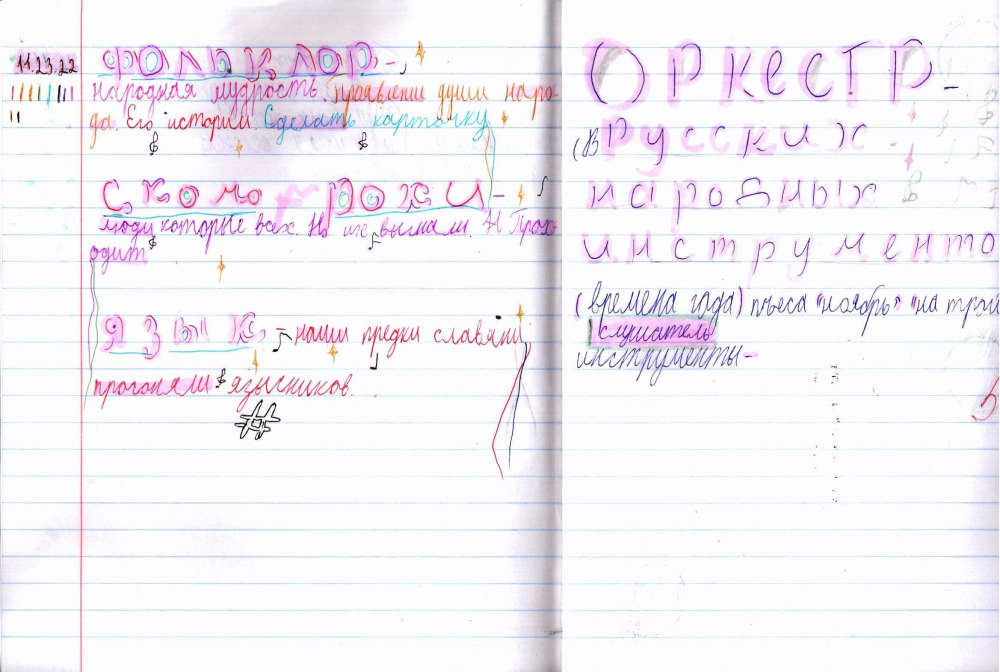 11.23.22
ФОЛЬКЛОР -
народная мудрость. Проявление души наро-
да. Его истории. Сделать карточку
Скомо рохи -
люди которые всех. Но их выгнали. И Прох-
одит
ЯЗЫК
- наши предки славяни
прогоняли язысников.
ОРКЕСТР -
(В Русских
народных
инструменто
(времена года) пьеса "ноябрь" "на трой
слушатель
инструменты -
5